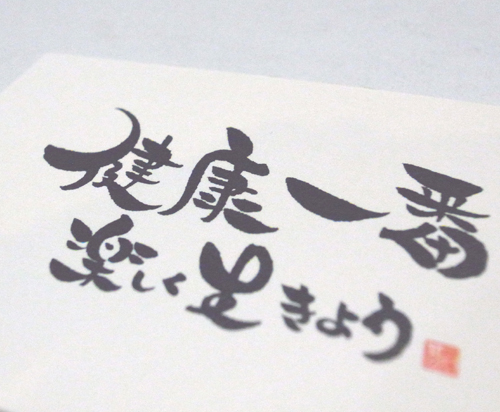 健康一番
楽しく生きよう